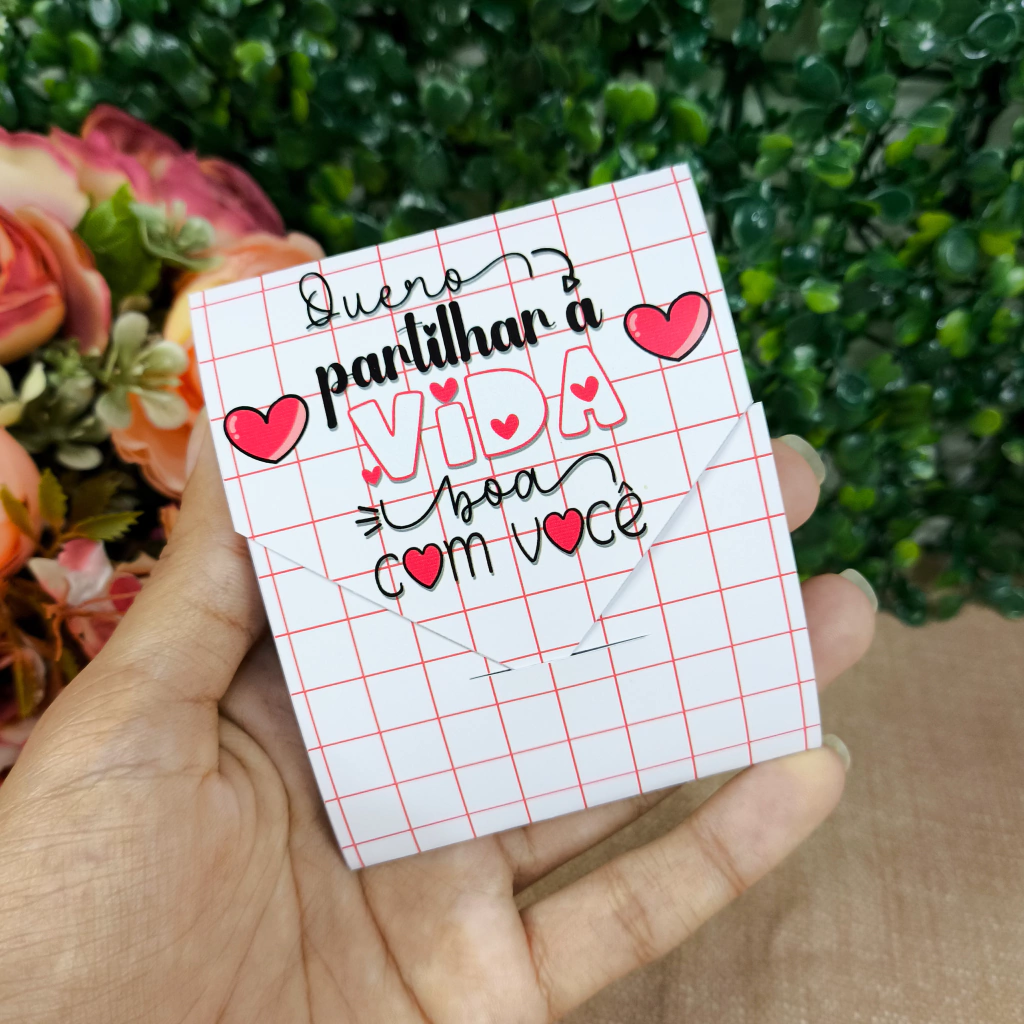 Quero
partilhar a
ViDA
boa
com você